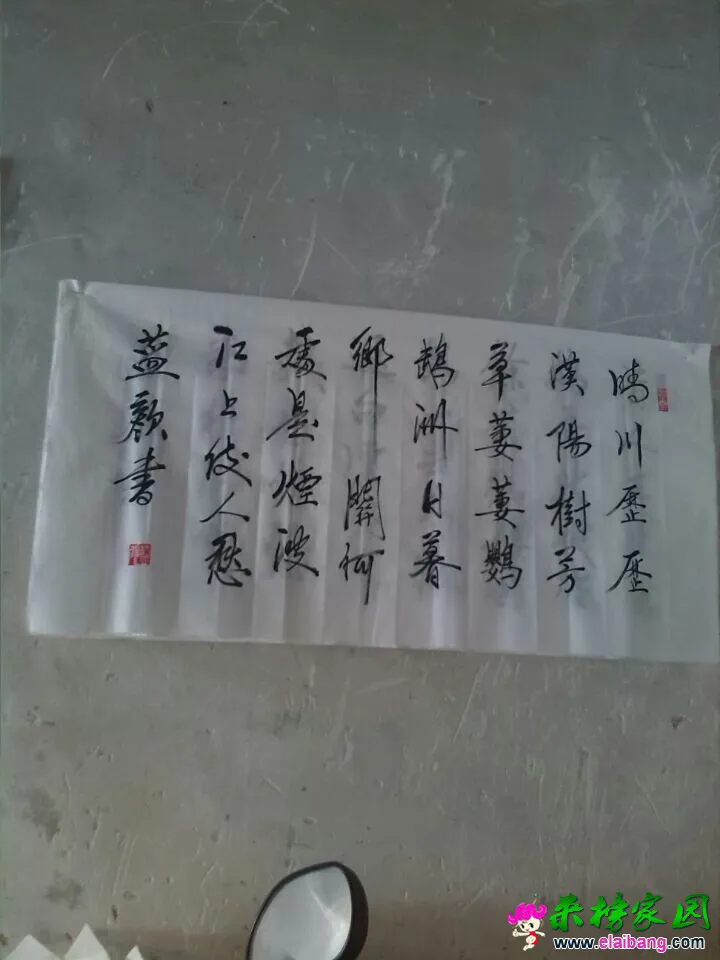 晴川歷歷
漢陽樹芳
草萋萋鸚
鵡洲日暮
鄉關何
處是煙波
江上使人愁
蓝颜書
来榜家园
www.elaibang.com